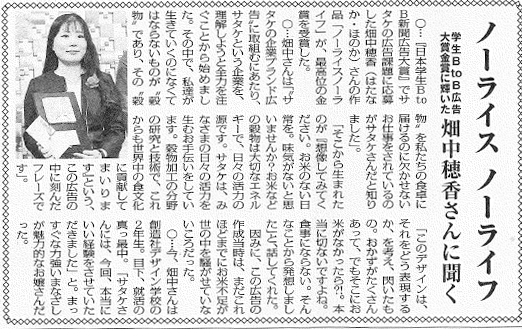 ノーライス ノーライフ
学生BtoB広告
大賞金賞に輝いた
畑中穂香さんに聞く
○…『日本学生Bto
B新聞広告大賞』でサ
タケの広告課題に応募
した畑中穂香（はたな
か・ほのか）さんの作
品「ノーライスノーラ
イフ」が、最高位の金
賞を受賞した。
○…畑中さんは「サ
タケの企業ブランド広
告に取組むにあたり、
サタケという企業を、
理解しようと全力を注
ぐことから始めまし
た。その中で、私達が
生きていくのになくて
はならないものが〝穀
物〟であり、その〝穀
物〟を私たちの食卓に
届けるのに欠かせない
お仕事をされているの
がサタケさんだと知り
ました」。
「そこから生まれた
のが『想像してみてく
ださい。お米のない日
常を。味気がないと思
いませんか？お米など
の穀物は大切なエネル
ギーで、日々の活力の
源です。サタケは、み
なさまの日々の活力を
生むお手伝いをしてい
ます。穀物加工の分野
の研究と技術で、これ
からも世界中の食文化
に貢献して
まいりま
す』という、
この広告の
中に刻んだ
フレーズで
す」。
「このデザインは、
それをどう表現する
か、を考え、閃いたも
の。おかずがたくさん
あって、でもそこにお
米がなかったら⁉。本
当に切ないですよね。
食事にならない。そん
なことから発想しまし
た」と、話してくれた。
因みに、この広告の
作成当時は、まだこれ
ほどまでにお米不足が
世の中を騒がせていな
いころだった。
○…今、畑中さんは
創造社デザイン学校の
2年生。目下、就活の
真っ最中。「サタケさ
んには、今回、本当に
いい経験をさせていた
だきました」と。まっ
すぐな力強いまなざし
が魅力的なお嬢さんだ
った。